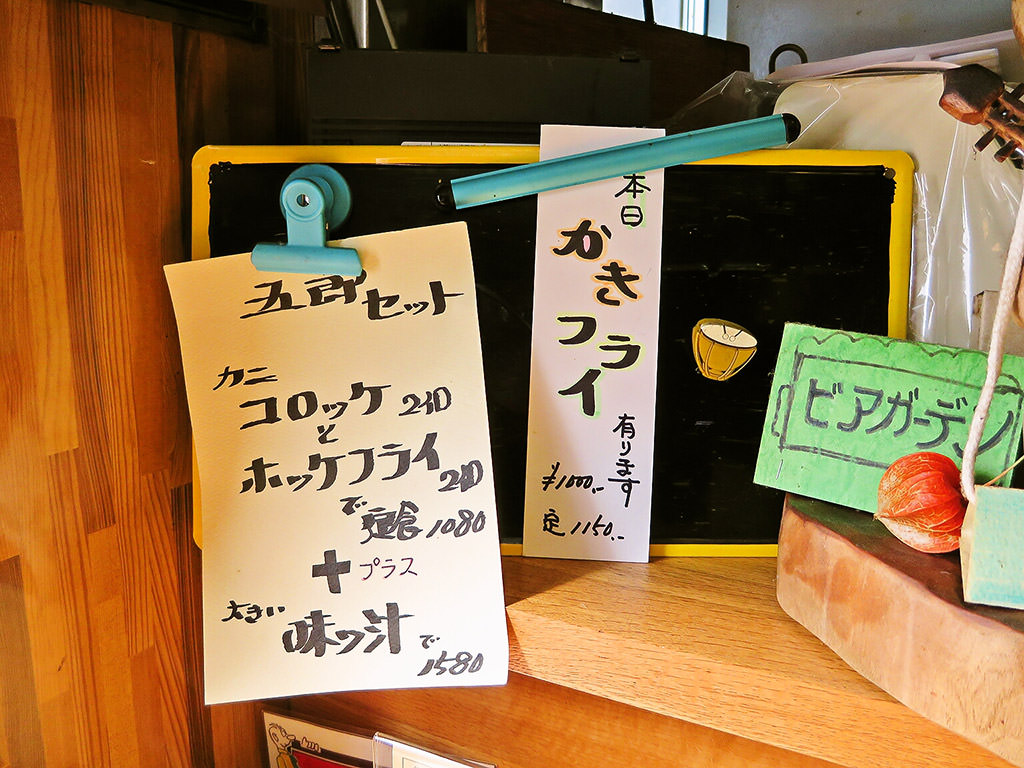 五郎セット
カニ
コロッケ 2個
と
ホッケフライ 2個
で 定食 1080
+ プラス
大きい 味ワ汁で
1580
本日
かき
フライ
有ります
¥1000.-
定 1150.-
ビアガーデン